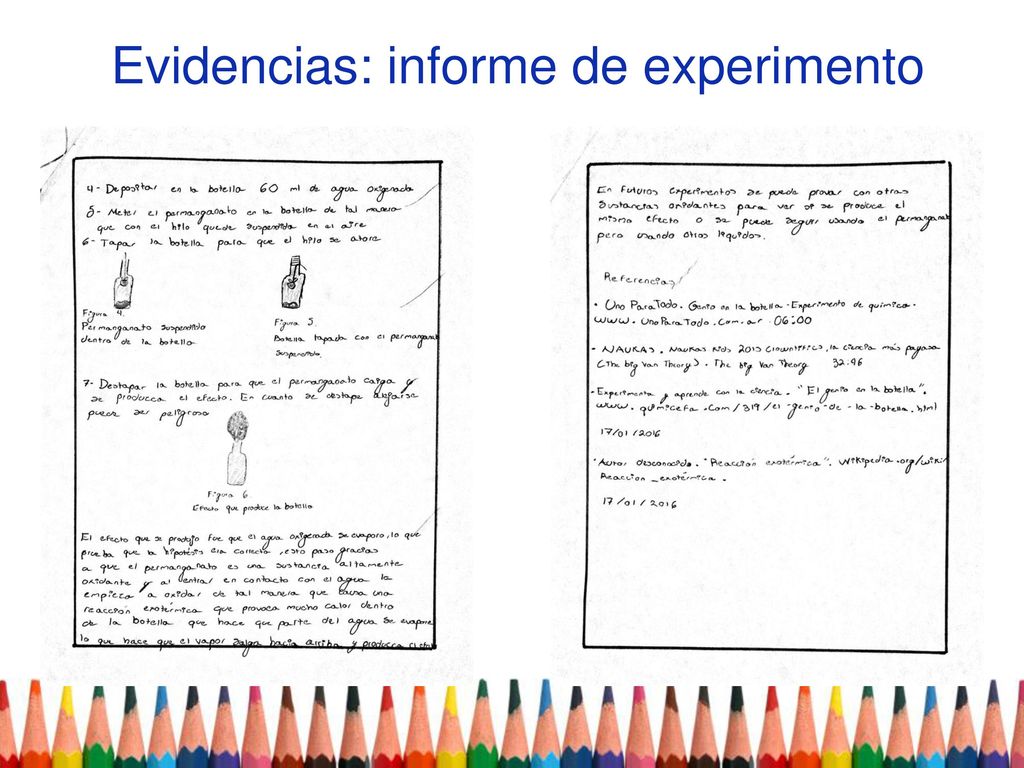 Evidencias: informe de experimento
4- Depositar en la botella 60 ml de agua oxigenada
5- Meter el permanganato en la botella de tal manera
que con el hilo quede suspendida en el aire
6- Tapar la botella para que el hilo se atore
Figura 4.
Permanganato suspendido
dentro de la botella
Figura 5.
Botella tapada con el permanganat
suspendido.
7- Destapar la botella para que el permanganato caiga y
se produzca el efecto. En cuanto se destape alejarse
puede ser peligroso
Figura 6.
Efecto que produce la botella
El efecto que se produjo fue que el agua oxigenada se evaporo, lo que
prueba que la hipótesis era correcta, esto paso gracias
a que el permanganato es una sustancia altamente
oxidante y al entrar en contacto con el agua la
empieza a oxidar de tal manera que causa una
reacción exotérmica que provoca mucho calor dentro
de la botella que hace que parte del agua se evapore
lo que hace que el vapor salga hacia arriba y produzca el
En futuros experimentos se puede provar con otras
sustancias oxidantes para ver si se produce el
mismo efecto o se puede seguir usando el permanganat
pero usando otros líquidos.
Referencias
· Uno Para Todo. Genio en la botella - Experimento de química.
www.UnoParaTodo.com.ar 06:00
· NAUKAS. Naukas Kids 2013 Clowntifics, la ciencia más payasa
(The Big Van Theory). The Big Van Theory 32:46
· Experimenta y aprende con la ciencia. "El genio en la botella".
www.quimicefa.com/319/el-genio-de-la-botella.html
17/01/2016
· Autor desconocido. "Reacción exotérmica". Wikipedia.org/wiki/
Reaccion_exotérmica.
17/01/2016